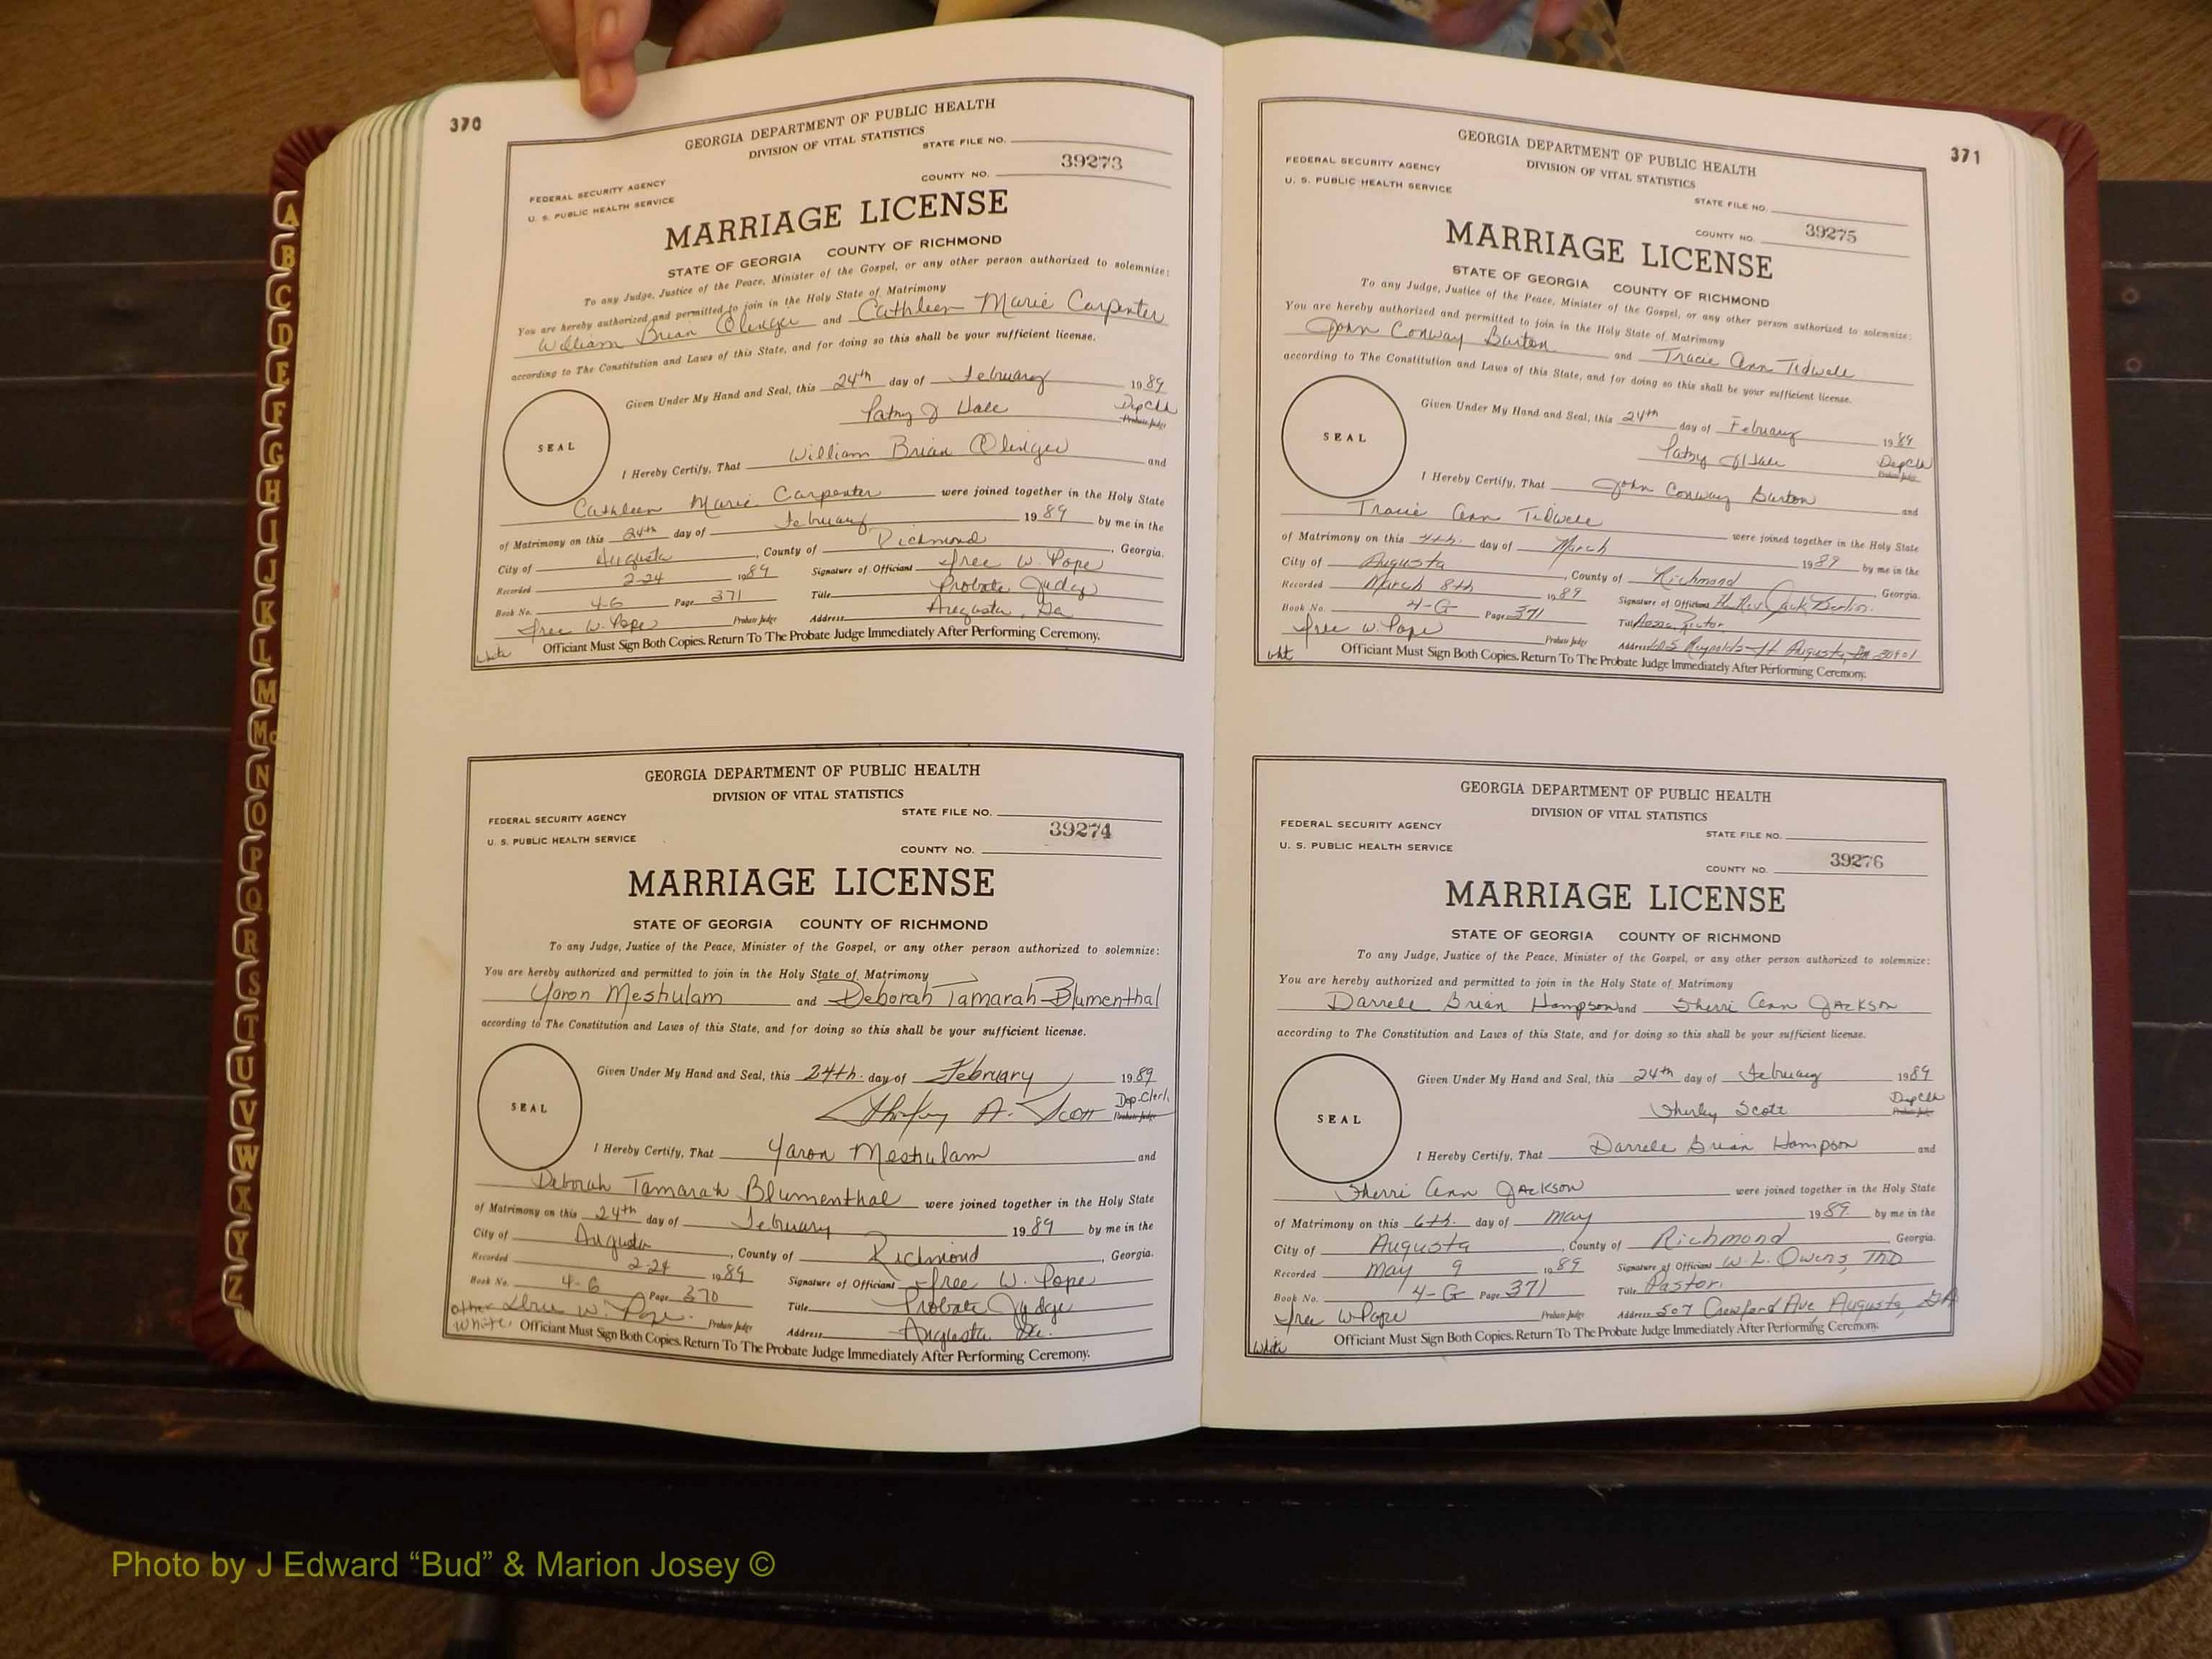 370
GEORGIA DEPARTMENT OF PUBLIC HEALTH
DIVISION OF VITAL STATISTICS
STATE FILE NO.
39273
FEDERAL SECURITY AGENCY
COUNTY NO.
U. S. PUBLIC HEALTH SERVICE
MARRIAGE LICENSE
STATE OF GEORGIA COUNTY OF RICHMOND
To any Judge, Justice of the Peace, Minister of the Gospel, or any other person authorized to solemnize:
You are hereby authorized and permitted to join in the Holy State of Matrimony
William Brian Olinger and Cathleen Marie Carpenter
according to The Constitution and Laws of this State, and for doing so this shall be your sufficient license.
Given Under My Hand and Seal, this 24th day of February 1989
Patsy J Hale Dep Clk
Probate Judge
SEAL
I Hereby Certify, That William Brian Olinger and
Cathleen Marie Carpenter were joined together in the Holy State
of Matrimony on this 24th day of February 1989 by me in the
City of Augusta, County of Richmond, Georgia.
Recorded 2-24 1989 Signature of Officiant W. Pope
Book No. 4-G Page 371 Title Probate Judge
W. Pope Probate Judge Address Augusta, Ga
White Officiant Must Sign Both Copies. Return To The Probate Judge Immediately After Performing Ceremony.
GEORGIA DEPARTMENT OF PUBLIC HEALTH
DIVISION OF VITAL STATISTICS
FEDERAL SECURITY AGENCY STATE FILE NO.
39274
U. S. PUBLIC HEALTH SERVICE
COUNTY NO.
MARRIAGE LICENSE
STATE OF GEORGIA COUNTY OF RICHMOND
To any Judge, Justice of the Peace, Minister of the Gospel, or any other person authorized to solemnize:
You are hereby authorized and permitted to join in the Holy State of Matrimony
Yaron Meshulam and Deborah Tamarah Blumenthal
according to The Constitution and Laws of this State, and for doing so this shall be your sufficient license.
Given Under My Hand and Seal, this 24th. day of February 1989
Shirley A. Scott Dep-Clerk
Probate Judge
SEAL
I Hereby Certify, That Yaron Meshulam and
Deborah Tamarah Blumenthal were joined together in the Holy State
of Matrimony on this 24th day of February 1989 by me in the
City of Augusta, County of Richmond, Georgia.
Recorded 2-24 1989 Signature of Officiant W. Pope
Book No. 4-G Page 370 Title Probate Judge
other W. Pope. Probate Judge Address Augusta Ga.
White. Officiant Must Sign Both Copies. Return To The Probate Judge Immediately After Performing Ceremony.
371
GEORGIA DEPARTMENT OF PUBLIC HEALTH
FEDERAL SECURITY AGENCY DIVISION OF VITAL STATISTICS
U. S. PUBLIC HEALTH SERVICE
STATE FILE NO.
39275
COUNTY NO.
MARRIAGE LICENSE
STATE OF GEORGIA COUNTY OF RICHMOND
To any Judge, Justice of the Peace, Minister of the Gospel, or any other person authorized to solemnize:
You are hereby authorized and permitted to join in the Holy State of Matrimony
John Conway Barton and Tracie Ann Tidwell
according to The Constitution and Laws of this State, and for doing so this shall be your sufficient license.
Given Under My Hand and Seal, this 24th day of February 1989
Patsy J Hale Dep Clk
Probate Judge
SEAL
I Hereby Certify, That John Conway Barton and
Tracie Ann Tidwell were joined together in the Holy State
of Matrimony on this 4th. day of March 1989 by me in the
City of Augusta, County of Richmond Georgia.
Recorded March 8th 1989 Signature of Officiant Jack
Book No. 4-G Page 371 Title Rector
W. Pope Probate Judge Address Reynolds St Augusta, Ga 30901
Officiant Must Sign Both Copies. Return To The Probate Judge Immediately After Performing Ceremony.
GEORGIA DEPARTMENT OF PUBLIC HEALTH
DIVISION OF VITAL STATISTICS
FEDERAL SECURITY AGENCY
STATE FILE NO.
U. S. PUBLIC HEALTH SERVICE
39276
COUNTY NO.
MARRIAGE LICENSE
STATE OF GEORGIA COUNTY OF RICHMOND
To any Judge, Justice of the Peace, Minister of the Gospel, or any other person authorized to solemnize:
You are hereby authorized and permitted to join in the Holy State of Matrimony
Darrell Brian Hampson and Sherri Ann Jackson
according to The Constitution and Laws of this State, and for doing so this shall be your sufficient license.
Given Under My Hand and Seal, this 24th day of February 1989
Shirley Scott Dep Clk
Probate Judge
SEAL
I Hereby Certify, That Darrell Brian Hampson and
Sherri Ann Jackson were joined together in the Holy State
of Matrimony on this 6th. day of May 1989. by me in the
City of Augusta, County of Richmond Georgia.
Recorded May 9 1989 Signature of Officiant W. L. Owens, ThD
Book No. 4-G Page 371 Title Pastor
W Pope Probate Judge Address 507 Crawford Ave Augusta, GA
White Officiant Must Sign Both Copies. Return To The Probate Judge Immediately After Performing Ceremony.
A
B
C
D
E
F
G
H
I
J
K
L
M
Mc
N
O
P
Q
R
S
T
U
V
W
X
Y
Z
Photo by J Edward “Bud” & Marion Josey ©